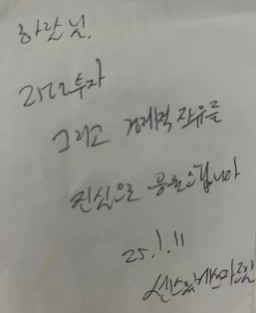 하람님,
투자
그리고 경제적 자유를
진심으로 응원합니다
25.1.11